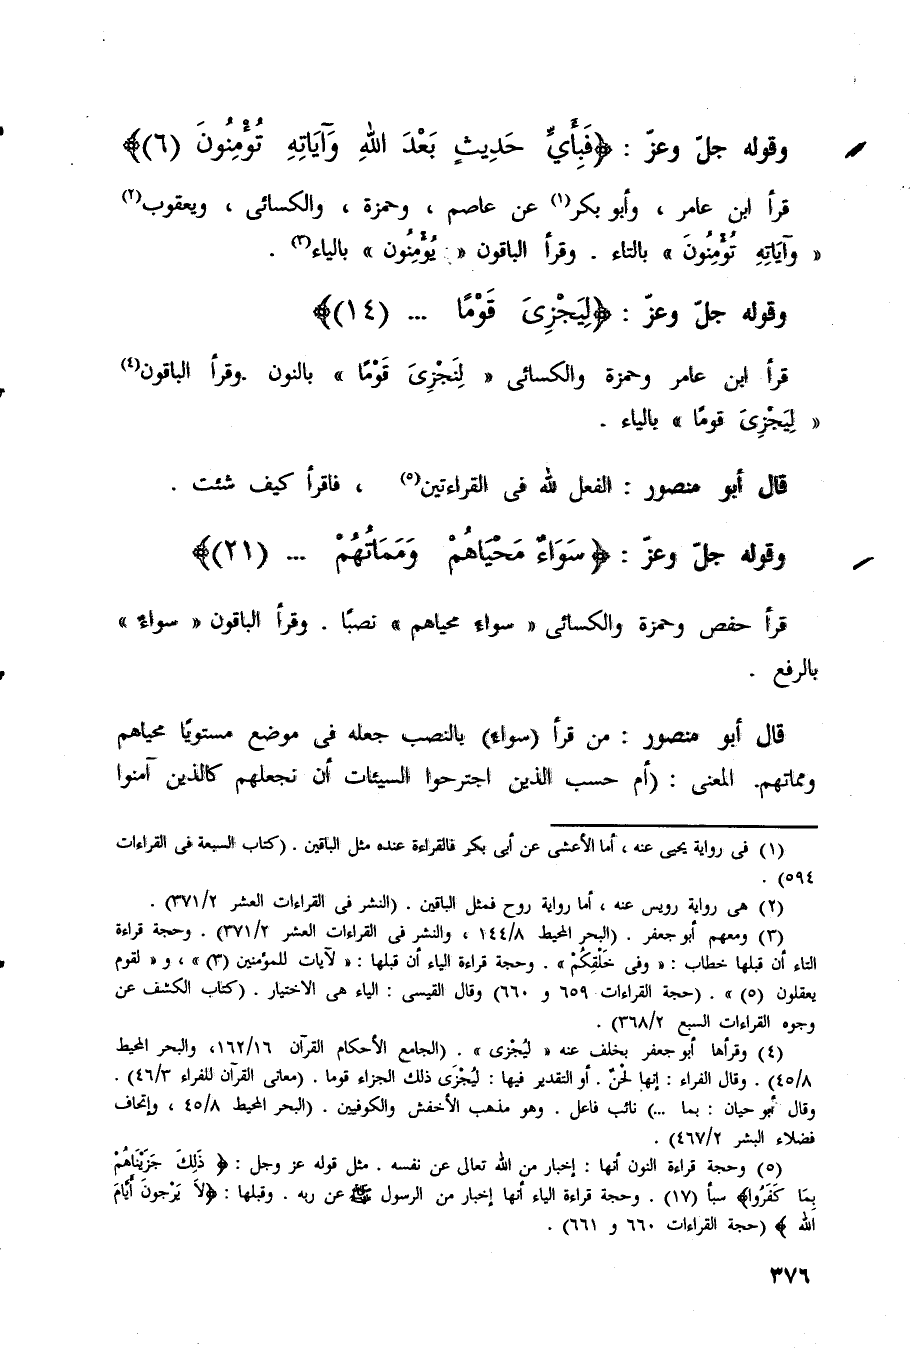 وقوله جلّ وعزّ : ﴿فَبِأَيِّ حَدِيثٍ بَعْدَ اللهِ وَآيَاتِهِ تُؤْمِنُونَ (٦)﴾
قرأ ابن عامر ، وأبو بكر(١) عن عاصم ، وحمزة ، والكسائى ، ويعقوب(٢)
« وآيَاتِهِ تُؤْمِنُونَ » بالتاء . وقرأ الباقون « يُؤْمِنُون » بالياء(٣) .
وقوله جلّ وعزّ : ﴿لِيَجْزِىَ قَوْمًا ... (١٤)﴾
قرأ ابن عامر وحمزة والكسائى « لِنَجْزِىَ قَوْمًا » بالنون .وقرأ الباقون(٤)
« لِيَجْزِىَ قومًا » بالياء .
قال أبو منصور : الفعل لله فى القراءتين(٥) ، فاقرأ كيف شئت .
وقوله جلّ وعزّ : ﴿ سَوَاءٌ مَحْيَاهُمْ وَمَمَاتُهُمْ ... (٢١)﴾
قرأ حفص وحمزة والكسائى « سواءً محياهم » نصبًا . وقرأ الباقون « سواءٌ »
بالرفع .
قال أبو منصور : من قرأ (سواءً) بالنصب جعله فى موضع مستويًا محياهم
ومماتهم. المعنى : (أم حسب الذين اجترحوا السيئات أن نجعلهم كالذين آمنوا
(١) فى رواية يحيى عنه ، أما الأعشى عن أبى بكر فالقراءة عنده مثل الباقين . (كتاب السبعة فى القراءات
٥٩٤) .
(٢) هى رواية رويس عنه ، أما رواية روح فمثل الباقين . (النشر فى القراءات العشر ٣٧١/٢) .
(٣) ومعهم أبو جعفر . (البحر المحيط ١٤٤/٨ ، والنشر فى القراءات العشر ٣٧١/٢) . وحجة قراءة
التاء أن قبلها خطاب : « وفى خَلْقِكُمْ » . وحجة قراءة الياء أن قبلها : « لآيات للمؤمنين (٣) » ، و « لقوم
يعقلون (٥) » . (حجة القراءات ٦٥٩ و ٦٦٠) وقال القيسى : الياء هى الاختيار . (كتاب الكشف عن
وجوه القراءات السبع ٣٦٨/٢) .
(٤) وقرأها أبو جعفر بخلف عنه « ليُجْزى » . (الجامع الأحكام القرآن ١٦٢/١٦، والبحر المحيط
٤٥/٨) . وقال الفراء : إنها لحْنٌ . أو التقدير فيها : ليُجْزَى ذلك الجزاء قوما . (معانى القرآن للفراء ٤٦/٣) .
وقال أبو حيان : بما ...) نائب فاعل . وهو مذهب الأخفش والكوفيين . (البحر المحيط ٤٥/٨ ، وإتحاف
فضلاء البشر ٤٦٧/٢) .
(٥) وحجة قراءة النون أنها : إخبار من الله تعالى عن نفسه . مثل قوله عز وجل : ﴿ ذَلِكَ جَزَيْنَاهُمْ
بِمَا كَفَرُوا﴾ سبأ (١٧) . وحجة قراءة الياء أنها إخبار من الرسول ﷺ عن ربه . وقبلها : ﴿لاَ يَرْجونَ أَيَّامَ
الله ﴾ (حجة القراءات ٦٦٠ و ٦٦١) .
٣٧٦